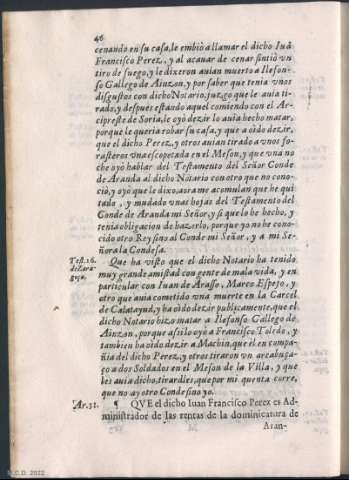 46
cenando en su casa, le embiò a llamar el dicho Iuā
Francisco Perez, y al acauar de cenar sintiò vn
tiro de fuego, y le dixeron auian muerto a Ilefon-
so Gallego de Ainzon, y por saber que tenia vnos
disgustos con dicho Notario, juzgo que le auia ti-
rado, y despues estando aquel comiendo con el Ar-
cipreste de Soria, le oyò dezir lo auia hecho matar,
porque le queria robar su casa, y que a oido dezir,
que el dicho Perez, y otros auian tirado a vnos fo-
rasteros vna escopetada en el Meson, y que vna no
che oyò hablar del Testamento del Señor Conde
de Aranda al dicho Notario con otro que no cono-
ciò, y oyò que le dixo, aora me acomulan que he qui
tado, y mudado vnas hojas del Testamento del
Conde de Aranda mi Señor, y si que lo he hecho, y
tenia obligacion de hazerlo, porque yo no he cono-
cido otro Rey sino al Conde mi Señor, y a mi Se-
ñora la Condesa.
Test. 16.
de Zara
goça.
Que ha visto que el dicho Notario ha tenido
muy grande amistad con gente de mala vida, y en
particular con Iuan de Arasso, Marco Espejo, y
otro que auia cometido vna muerte en la Carcel
de Calatayud, y ha oido dezir publicamente, que el
dicho Notario hizo matar a Ilefonso Gallego de
Ainzon, porque assi lo oyò a Francisco Toledo, y
tambien ha oido dezir a Machin, que èl en compa-
ñia del dicho Perez, y otros tiraron vn arcabuça-
ço a dos Soldados en el Meson de la Villa, y que
les auia dicho, tiradles, que por mi quenta corre,
que no ay otro Conde sino yo.
Ar. 31.
¶ QVE el dicho Iuan Francisco Perez es Ad-
ministrador de las rentas de la dominicatura de
Aran-